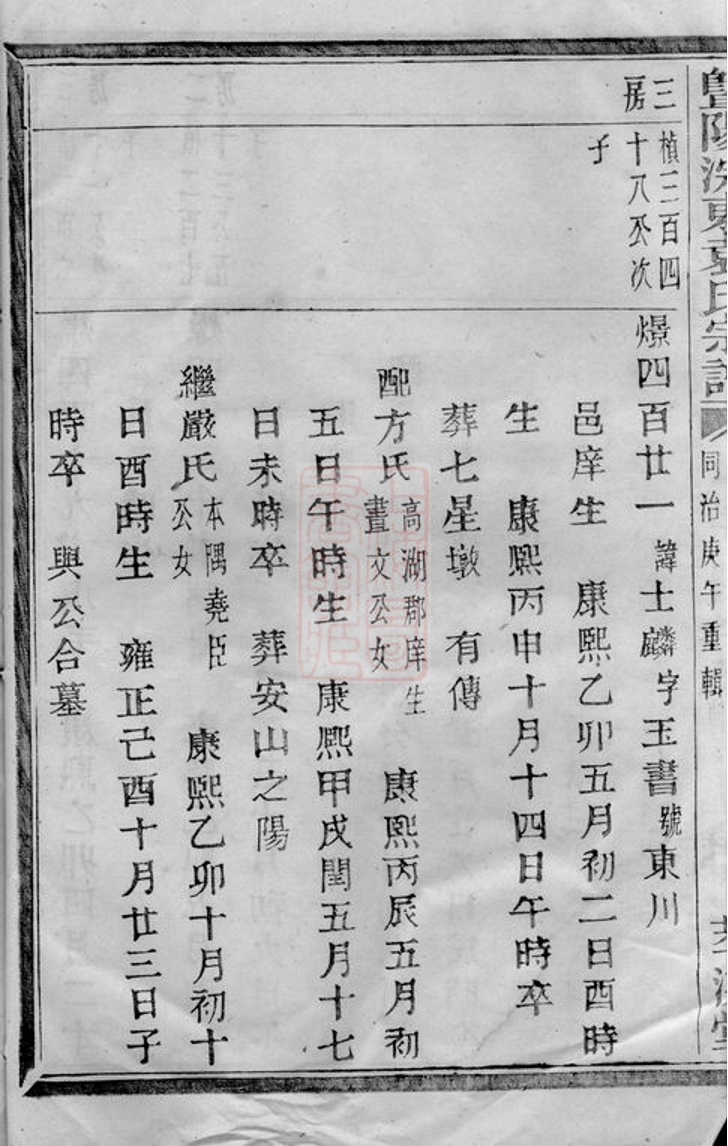 暨陽洗東袁氏宗譜 同治庚午重輯
三房
楨三百四
十八公次
子
燝四百廿一 諱士麟字玉書號東川
邑庠生 康熙乙卯五月初二日酉時
生 康熙丙申十月十四日午時卒
葬七星墩 有傳
配方氏 高湖郡庠生
畫文公女 康熙丙辰五月初
五日午時生 康熙甲戌閏五月十七
日未時卒 葬安山之陽
繼嚴氏 本隅堯臣
公女 康熙乙卯十月初十
日酉時生 雍正己酉十月廿三日子
時卒 與公合墓